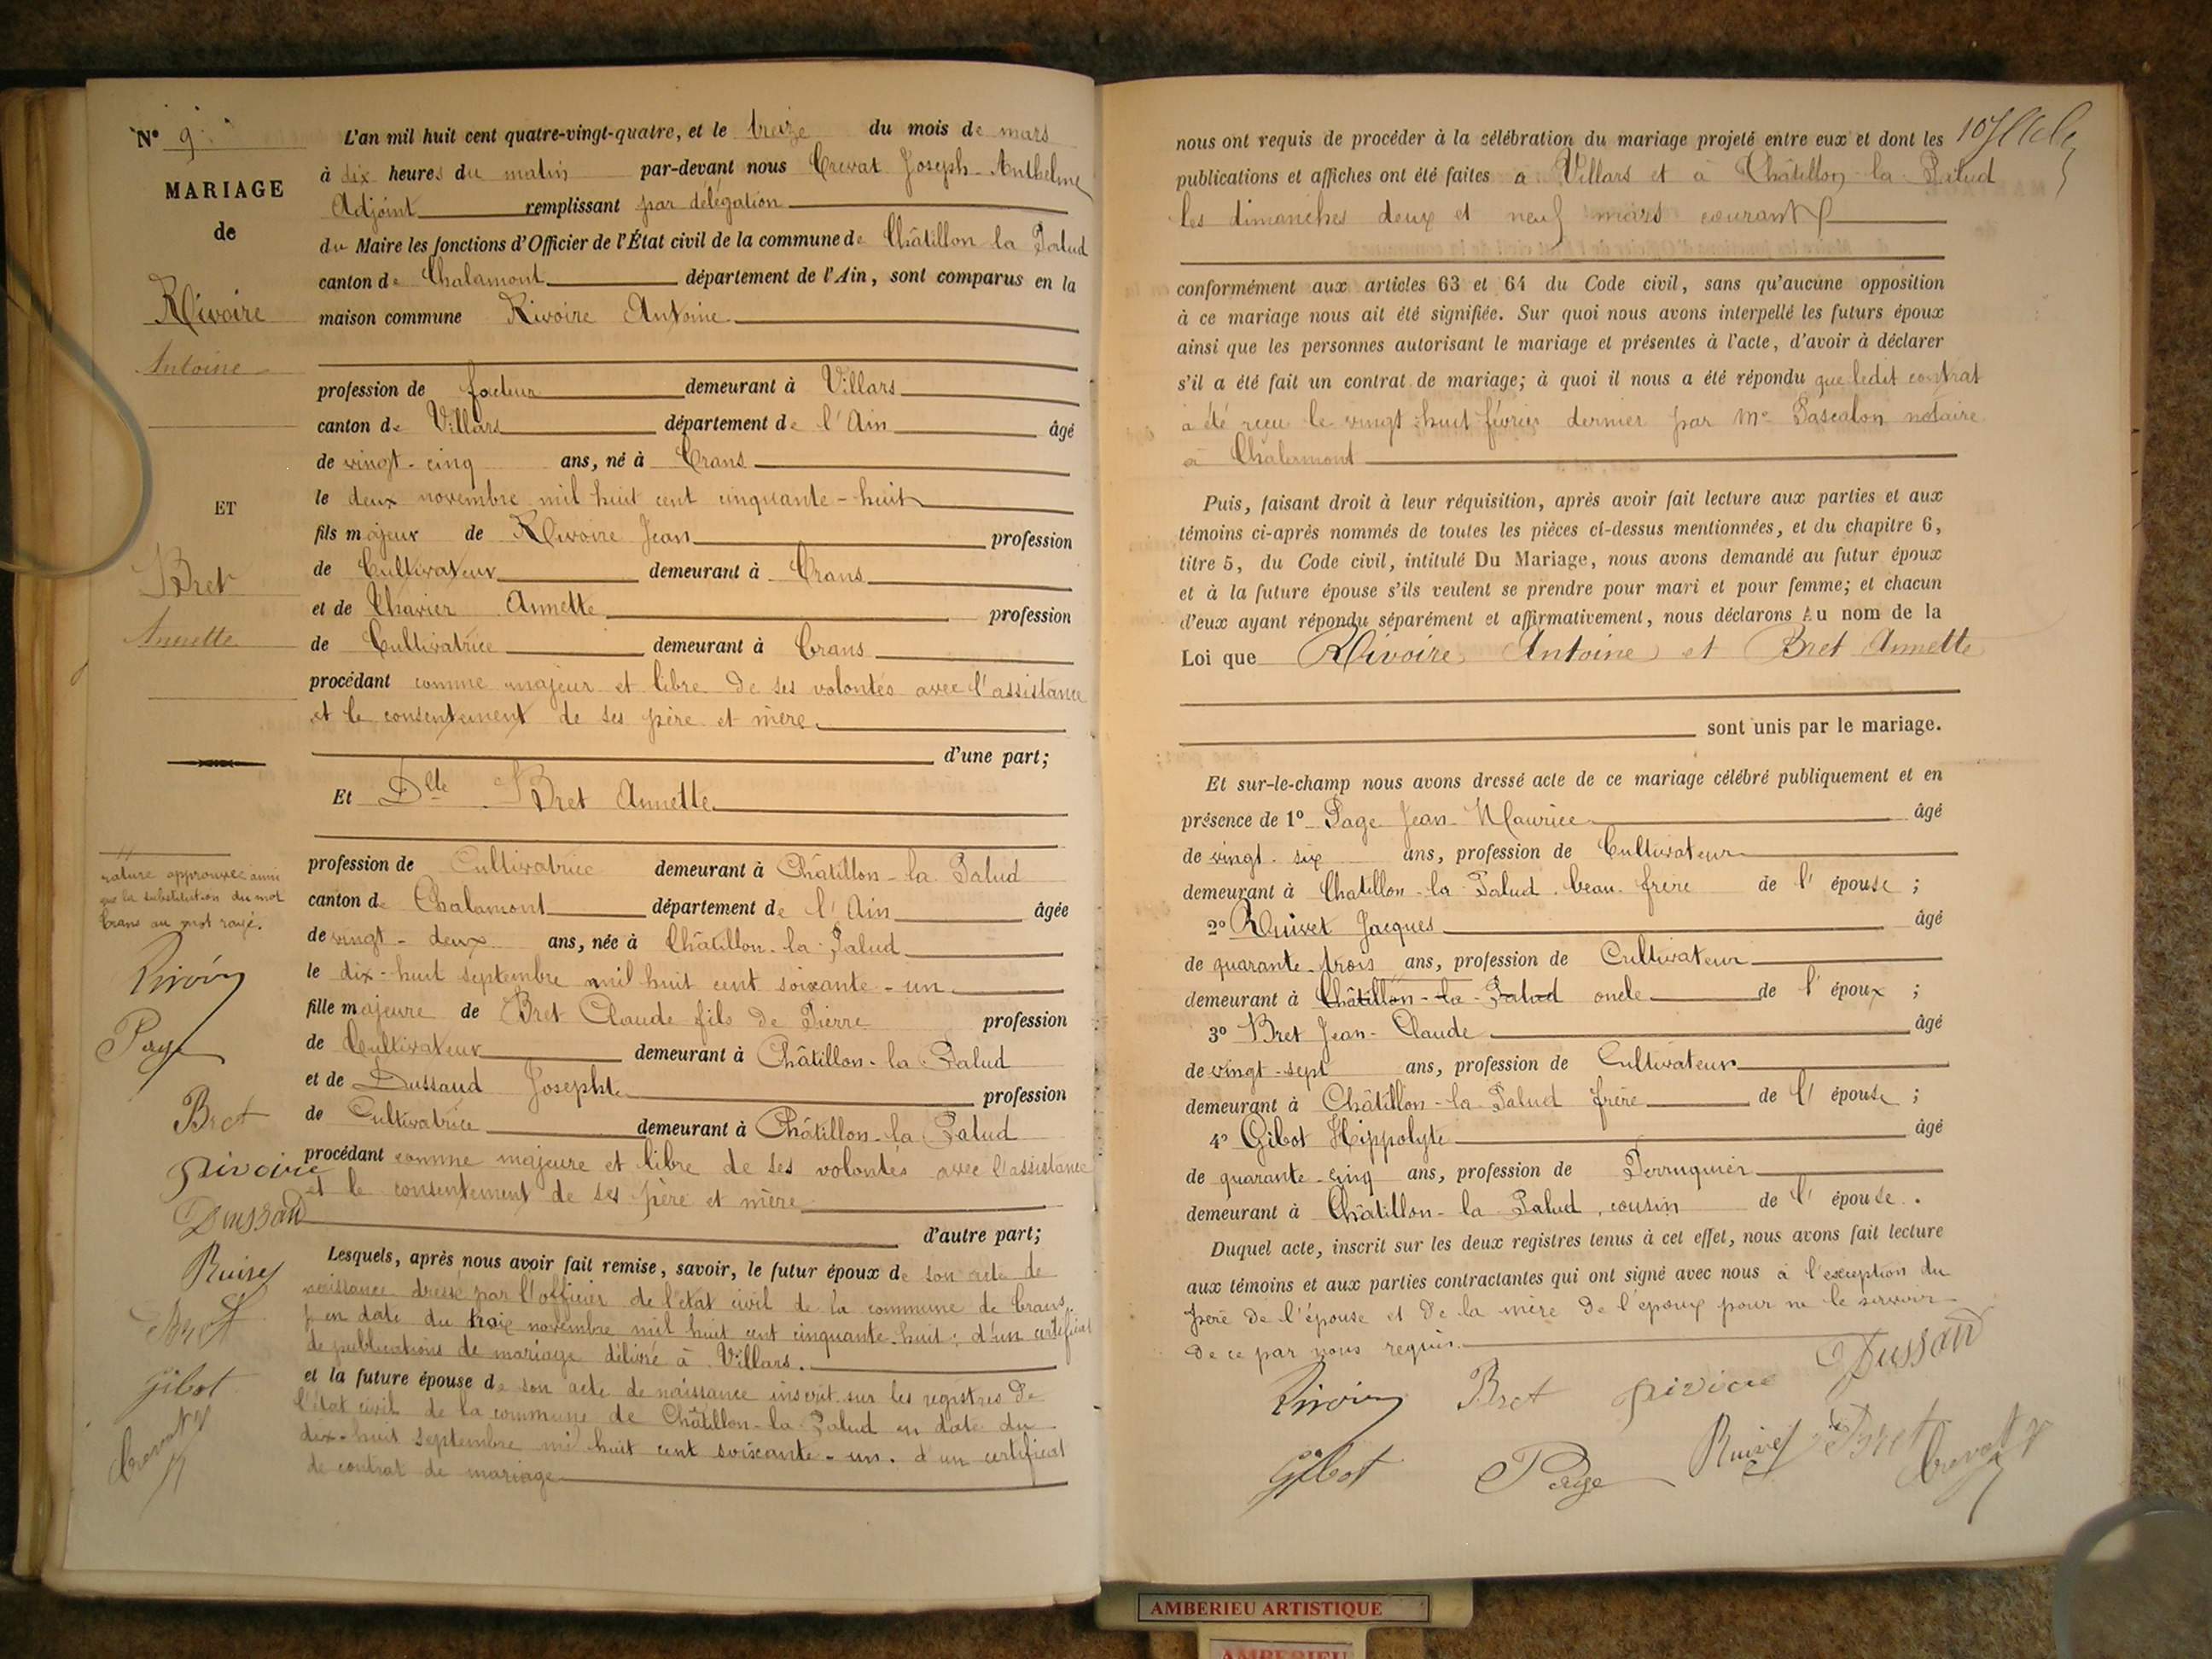 N° 9
MARIAGE
de
Rivoire
Antoine
ET
Bret
Annette
rature approuvée ainsi
que la substitution du mot
Crans au mot rayé.
Page
Bret
rivoire
Dussaud
Ruivet
Bret
Gibot
Crevat
L'an mil huit cent quatre-vingt-quatre, et le treize du mois de mars
à dix heures du matin par-devant nous Crevat Joseph-Anthelme
Adjoint remplissant par délégation
du Maire les fonctions d'Officier de l'État civil de la commune de Châtillon la Palud
canton de Chalamont département de l'Ain, sont comparus en la
maison commune Rivoire Antoine
profession de facteur demeurant à Villars
canton de Villars département de l'Ain âgé
de vingt-cinq ans, né à Crans
le deux novembre mil huit cent cinquante-huit
fils majeur de Rivoire Jean profession
de Cultivateur demeurant à Crans
et de Chavier Annette profession
de Cultivatrice demeurant à Crans
procédant comme majeur et libre de ses volontés avec l'assistance
et le consentement de ses père et mère
d'une part;
Et Dlle Bret Annette
profession de Cultivatrice demeurant à Châtillon-la-Palud
canton de Chalamont département de l'Ain âgée
de vingt-deux ans, née à Châtillon-la-Palud
le dix-huit septembre mil huit cent soixante-un
fille majeure de Bret Claude fils de Pierre profession
de Cultivateur demeurant à Châtillon-la-Palud
et de Dussaud Josephte profession
de Cultivatrice demeurant à Châtillon-la-Palud
procédant comme majeure et libre de ses volontés avec l'assistance
et le consentement de ses père et mère
d'autre part;
Lesquels, après nous avoir fait remise, savoir, le futur époux de son acte de
naissance dressé par l'officier de l'état civil de la commune de Crans,
en date du trois novembre mil huit cent cinquante-huit; d'un certificat
de publications de mariage délivré à Villars.
et la future épouse de son acte de naissance inscrit sur les registres de
l'état civil de la commune de Châtillon-la-Palud en date du
dix-huit septembre mil huit cent soixante-un. d'un certificat
de contrat de mariage
nous ont requis de procéder à la célébration du mariage projeté entre eux et dont les
publications et affiches ont été faites à Villars et à Châtillon-la-Palud
les dimanches deux et neuf mars courant
conformément aux articles 63 et 64 du Code civil, sans qu'aucune opposition
à ce mariage nous ait été signifiée. Sur quoi nous avons interpellé les futurs époux
ainsi que les personnes autorisant le mariage et présentes à l'acte, d'avoir à déclarer
s'il a été fait un contrat de mariage; à quoi il nous a été répondu que ledit contrat
a été reçu le vingt huit février dernier par Me Pascalon notaire
à Chalamont
Puis, faisant droit à leur réquisition, après avoir fait lecture aux parties et aux
témoins ci-après nommés de toutes les pièces ci-dessus mentionnées, et du chapitre 6,
titre 5, du Code civil, intitulé Du Mariage, nous avons demandé au futur époux
et à la future épouse s'ils veulent se prendre pour mari et pour femme; et chacun
d'eux ayant répondu séparément et affirmativement, nous déclarons Au nom de la
Loi que Rivoire Antoine et Bret Annette
sont unis par le mariage.
Et sur-le-champ nous avons dressé acte de ce mariage célébré publiquement et en
présence de 1° Page Jean-Maurice âgé
de vingt-six ans, profession de Cultivateur
demeurant à Chatillon-la-Palud beau-frère de l'épouse;
2° Ruivet Jacques âgé
de quarante-trois ans, profession de Cultivateur
demeurant à Châtillon-la-Palud oncle de l'époux;
3° Bret Jean-Claude âgé
de vingt-sept ans, profession de Cultivateur
demeurant à Châtillon-la-Palud frère de l'épouse;
4° Gibot Hippolyte âgé
de quarante-cinq ans, profession de Perruquier
demeurant à Châtillon-la-Palud, cousin de l'épouse.
Duquel acte, inscrit sur les deux registres tenus à cet effet, nous avons fait lecture
aux témoins et aux parties contractantes qui ont signé avec nous à l'exception du
père de l'épouse et de la mère de l'époux pour ne le savoir
de ce par nous requis.
Bret rivoire Dussaud
Gibot Page Ruivet Bret Crevat
AMBERIEU ARTISTIQUE
AMBERIEU